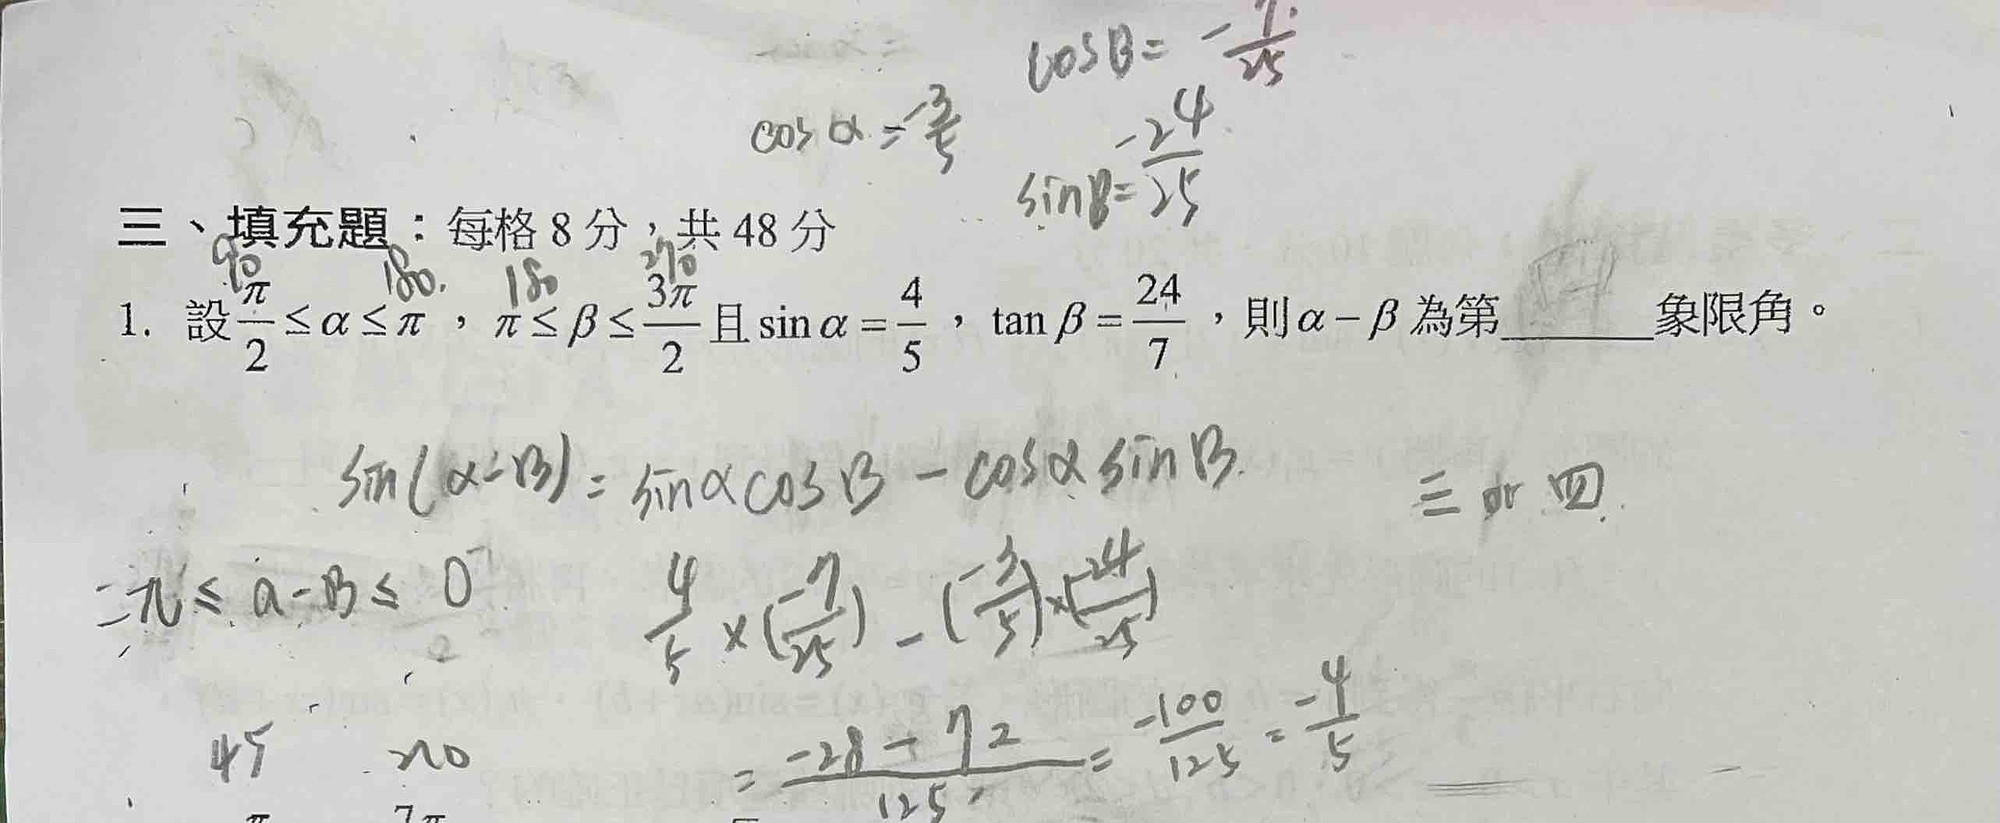 cosβ = -7/25
cosα = -3/5
sinβ = -24/25
三、填充題：每格 8 分，共 48 分
90 180 180 270
1. 設 π/2 ≤ α ≤ π ， π ≤ β ≤ 3π/2 且 sin α = 4/5 ， tan β = 24/7 ，則 α − β 為第______象限角。
sin(α-β) = sinαcosβ - cosα sinβ.
三 or 四
-π ≤ α-β ≤ 0
4/5 × (-7/25) - (-3/5) × (-24/25)
= (-28 - 72)/125 = -100/125 = -4/5
45 270
π 7π